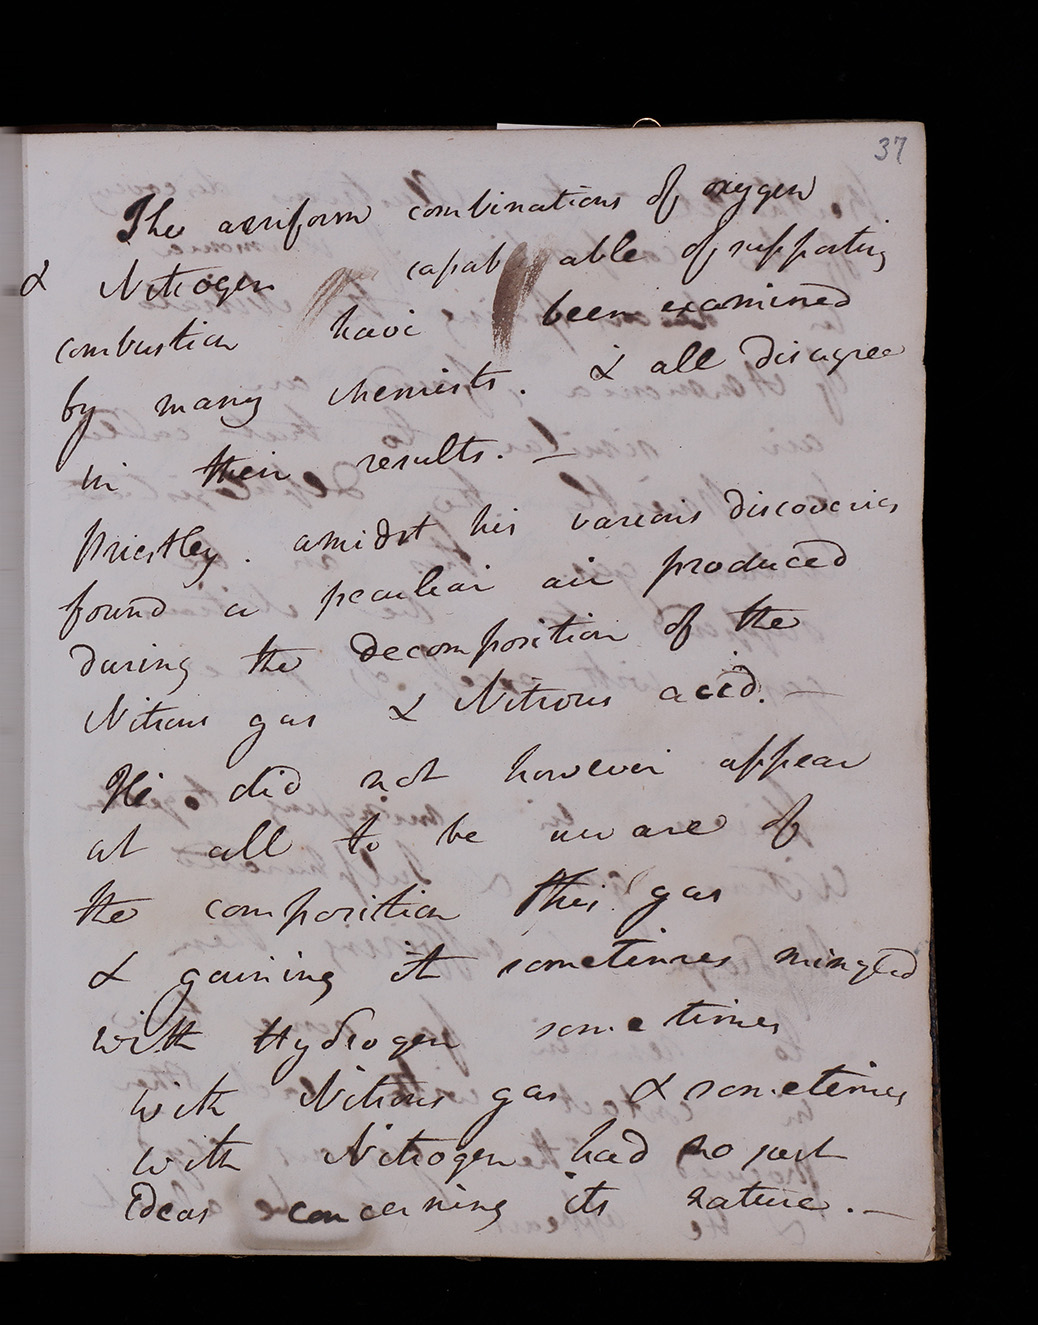 37
The aeriform combinations of oxygen
& Nitrogen capab able of supporting
combustion have been examined
by many chemists. & all disagree
in their results. —
Priestley. amidst his various discoveries
found a peculiar air produced
during the decomposition of the
Nitrous gas & Nitrous acid. —
He did not however appear
at all to be aware of
the composition this gas
& gaining it sometimes mingled
with Hydrogen sometimes
with Nitrous gas & sometimes
with Nitrogen had no just
ideas concerning its nature. —